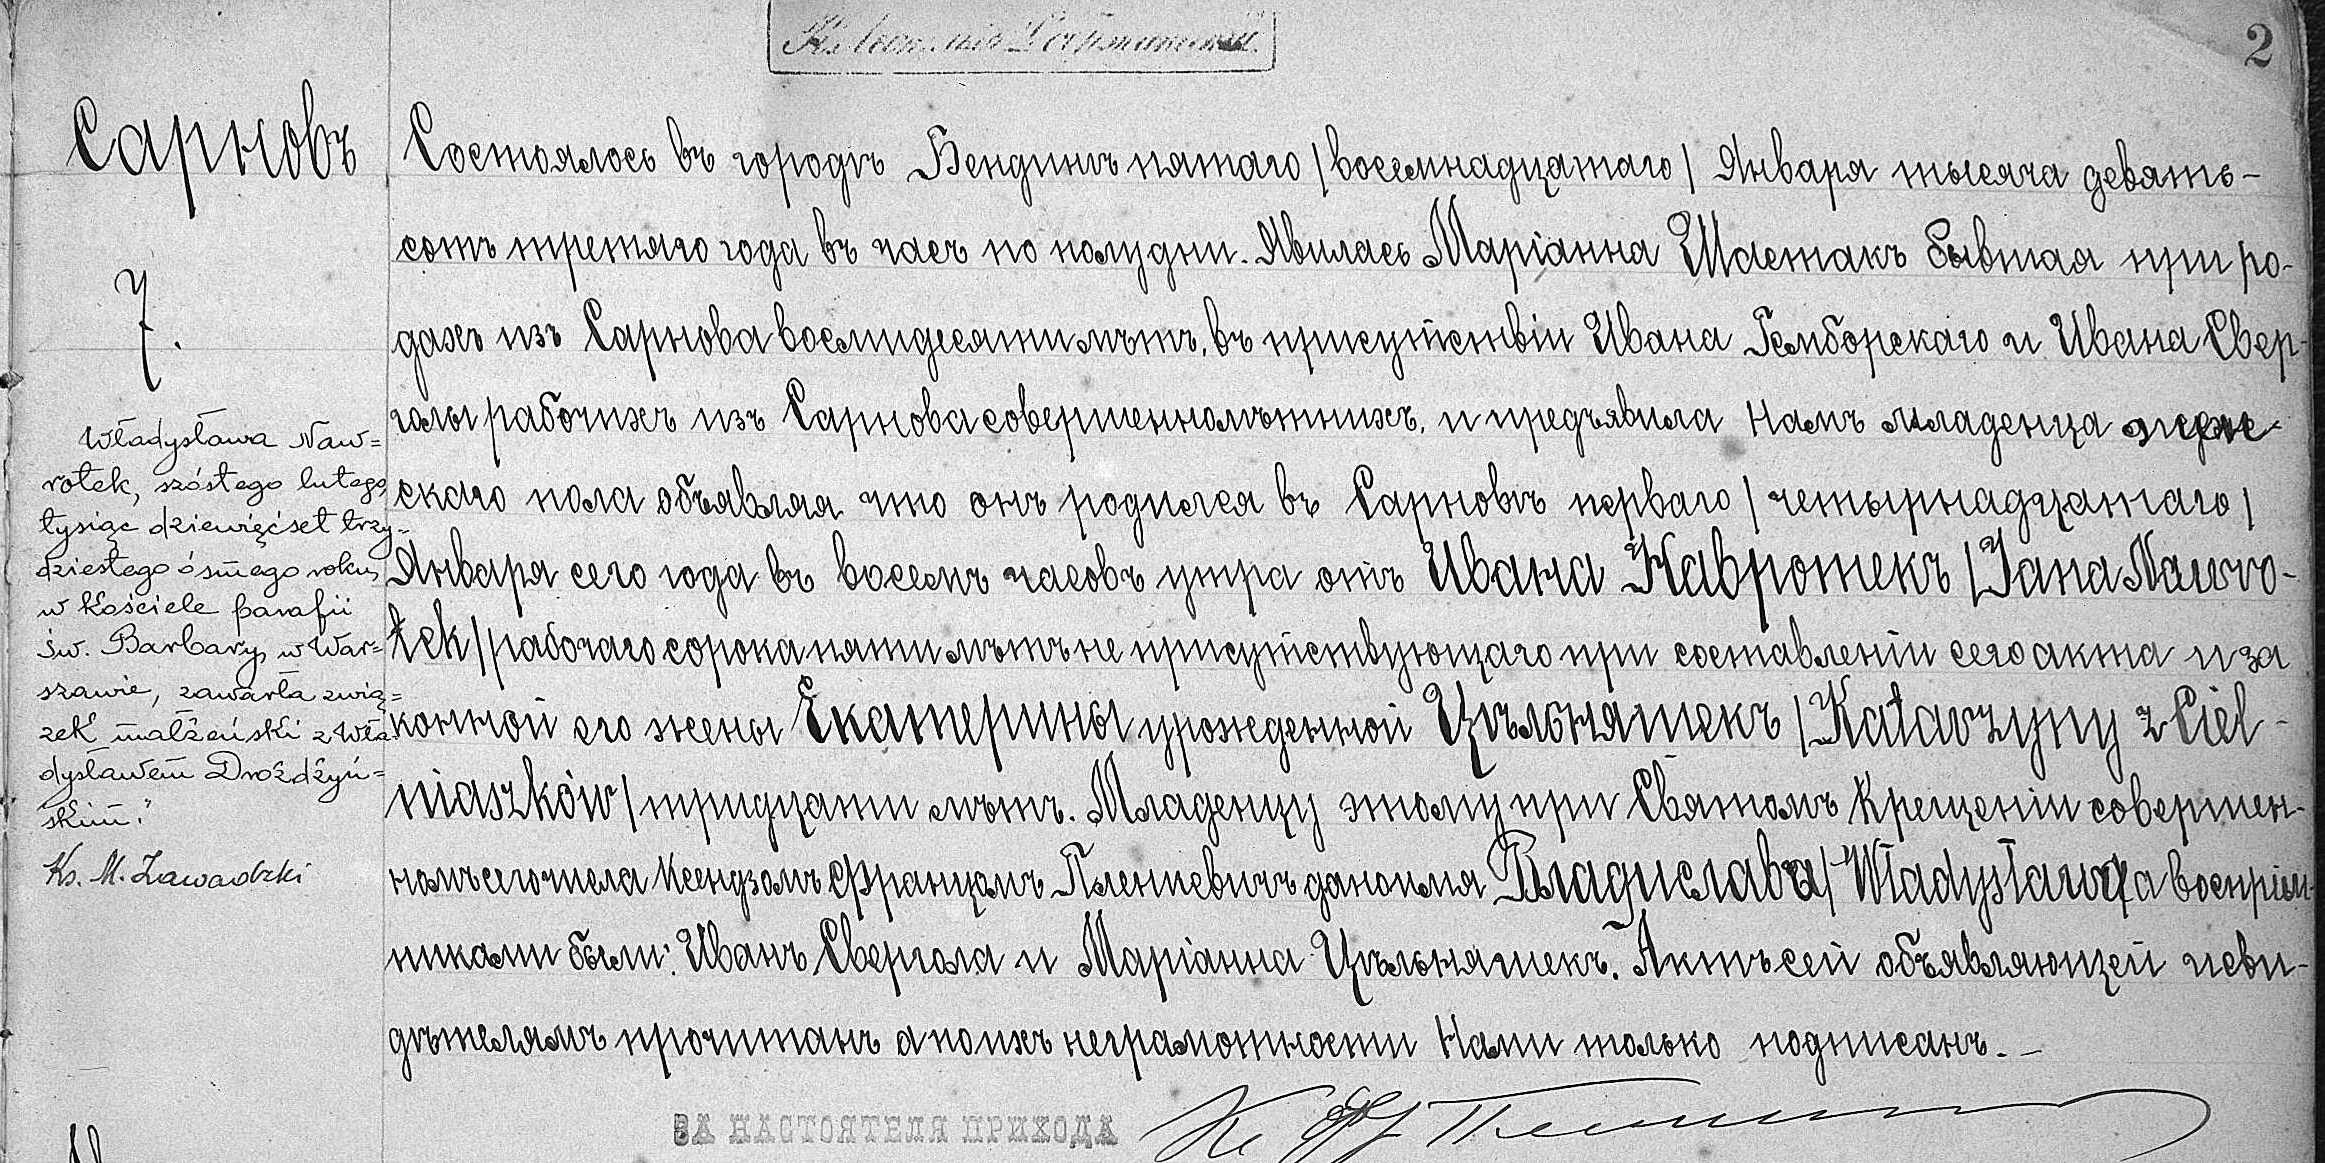 2
Сарновъ
7.
Władysława Naw=
rotek, szóstego lutego
tysiąc dziewięćset trzy-
dziestego ósmego roku,
w kościele parafii
św. Barbary, w War=
szawie, zawarła zwią=
zek małżeński z Wła-
dysławem Drożdżyń=
skim."
Ks. M. Zawadzki
Состоялось въ городѣ Бендинѣ пятаго /восемнадцатаго/ Января тысяча девять-
сотъ третяго года въ часъ по полудни. Явилась Маріанна Шастакъ бывшая при ро-
дахъ изъ Сарнова восмидесяти лѣтъ, въ присутствіи Ивана Гемборскаго и Ивана Свер-
голы рабочихъ изъ Сарнова совершеннолѣтнихъ, и предъявила Намъ младенца жен-
скаго пола объявляя что онъ родился въ Сарновѣ перваго /четырнадцатаго/
Января сего года въ восемъ часовъ утра отъ Ивана Навротекъ /Jana Nawro-
tek/ рабочаго сорока пяти лѣтъ не присутствующаго при составленіи сего акта и за
конной его жены Екатерины урожденной Цѣльняшекъ /Katarzyny z Ciel-
niaszków/ тридцати лѣтъ. Младенцу этому при Святомъ Крещеніи совершен-
номъ сего числа Ксендзомъ Францомъ Пленкевичъ дано имя Владислава /Władysława/ а воспріем-
никами были: Иванъ Свергола и Маріанна Цѣльняшекъ. Актъ сей объявляющей и сви-
дѣтелямъ прочитанъ а по ихъ неграмотности Нами только подписанъ.-
ЗА НАСТОЯТЕЛЯ ПРИХОДА
Кс Фр